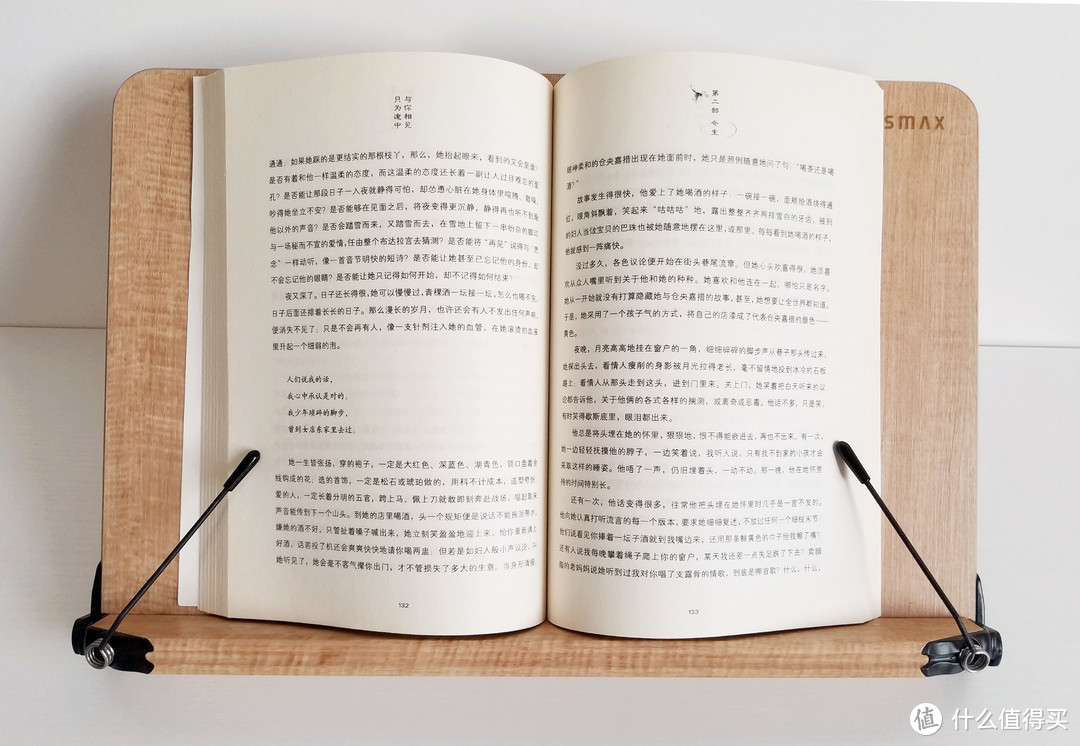 只为途中
与你相见
通通；如果她踩的是更结实的那根枝丫，那么，她抬起眼来，看到的又会是谁？
是否有着和他一样温柔的态度，而这温柔的态度还长着一副让人过目难忘的面
孔？是否能让那段日子一入夜就静得可怕，却怂恿心脏在她身体里喧腾、鼓噪，
吵得她坐立不安？是否能够在见面之后，将夜变得更沉静，静得再也听不到除
他以外的声音？是否会踏雪而来，又踏雪而去，在雪地上留下一串纷杂的脚印
与一场秘而不宣的爱情，任由整个布达拉宫去猜测？是否能将“再见”说得与“思
念”一样动听，像一首音节明快的短诗？是否能让她甚至已忘记他的身份，却
不会忘记他的眼睛？是否能让她只记得如何开始，却不记得如何结束？
夜又深了。日子还长得很，她可以慢慢过，青稞酒一坛接一坛，怎么也喝不完，
日子后面还排着长长的日子。那么漫长的岁月，也许还会有人不发出任何声响，
便消失不见了；只是不会再有人，像一支针剂注入她的血管，在她滚烫的血液
里升起一个细弱的泡。
人们说我的话，
我心中承认是对的。
我少年琐碎的脚步，
曾到女店东家里去过。
她一生皆张扬，穿的袍子，一定是大红色、深蓝色、湖青色，领口盘着金
线钩成的花；选的首饰，一定是松石或琥珀做的，用料不计成本，造型夸张；
爱的人，一定长着分明的五官，跨上马、佩上刀就敢即刻奔赴战场，唱起歌来
声音能传到下一个山头。到她的店里喝酒，头一个规矩便是说话不能扭捏羞水，
嫌她的酒不好，只管扯着嗓子喊出来，她立刻笑盈盈地迎上来，给你重新满上
好酒；话若投了机还会爽爽快快地请你喝两盅；但若是如妇人般小声议论，叫
她听见了，她会毫不客气撵你出门，才不管损失了多大的生意。当身形清瘦、
132
第二部 今生
眼神柔和的仓央嘉措出现在她面前时，她只是照例随意地问了句：“喝茶还是喝
酒？”
故事发生得很快，他爱上了她喝酒的样子，一碗接一碗，面颊给酒烧得通
红，眼角斜飘着，笑起来“咕咕咕”地，露出整整齐齐两排雪白的牙齿，被别
的妇人当做宝贝的巴珠也被她随意地摆在这里，或那里。每每看到她喝酒的样子，
他就感到一阵痛快。
没过多久，各色议论便开始在街头巷尾流窜。但她心头欢喜得很，她喜喜
欢从众人嘴里听到关于他和她的种种。她喜欢和他连在一起，哪怕只是名字。
她从一开始就没有打算隐藏她与仓央嘉措的故事，甚至，她想要让全世界都知道。
于是，她采用了一个孩子气的方式，将自己的店漆成了代表仓央嘉措的颜色——
黄色。
夜晚，月亮高高地挂在窗户的一角，细细碎碎的脚步声从巷子那头传过来。
她探出头去，看情人瘦削的身影被月光拉得老长，毫不留情地投到冰冷的石板
路上；看情人从那头走到这头，进到门里来。关上门，她笑着把白天听来的议
论都告诉他，关于他俩的各式各样的揣测，或离奇或恶毒。他话不多，只是笑，
有时笑得歇斯底里，眼泪都出来。
他总是将头埋在她的怀里，狠狠地，恨不得能嵌进去，再也不出来。有一次，
她一边轻轻抚摸他的脖子，一边笑着说，我听人说，只有找不到家的小孩才会
采取这样的睡姿。他唔了一声，仍旧埋着头，一动不动。那一晚，他在她怀里
待的时间特别长。
还有一次，他话变得很多，往常他把头埋在她怀里时几乎是一言不发的。
他向她认真打听流言的每一个版本，要求她细细复述，不放过任何一个细枝末节：
他们说看见你捧着一坛子酒就到我嘴边来，还用那条鲜黄色的巾子给我擦了嘴？
还有人说我每晚攀着绳子爬上你的窗户，某天我还差一点失足跌了下去？卖胭
脂的老妈妈说她听到过我对你唱了支露骨的情歌，到底是哪首歌？什么，什么，
133
SMAX
值 什么值得买